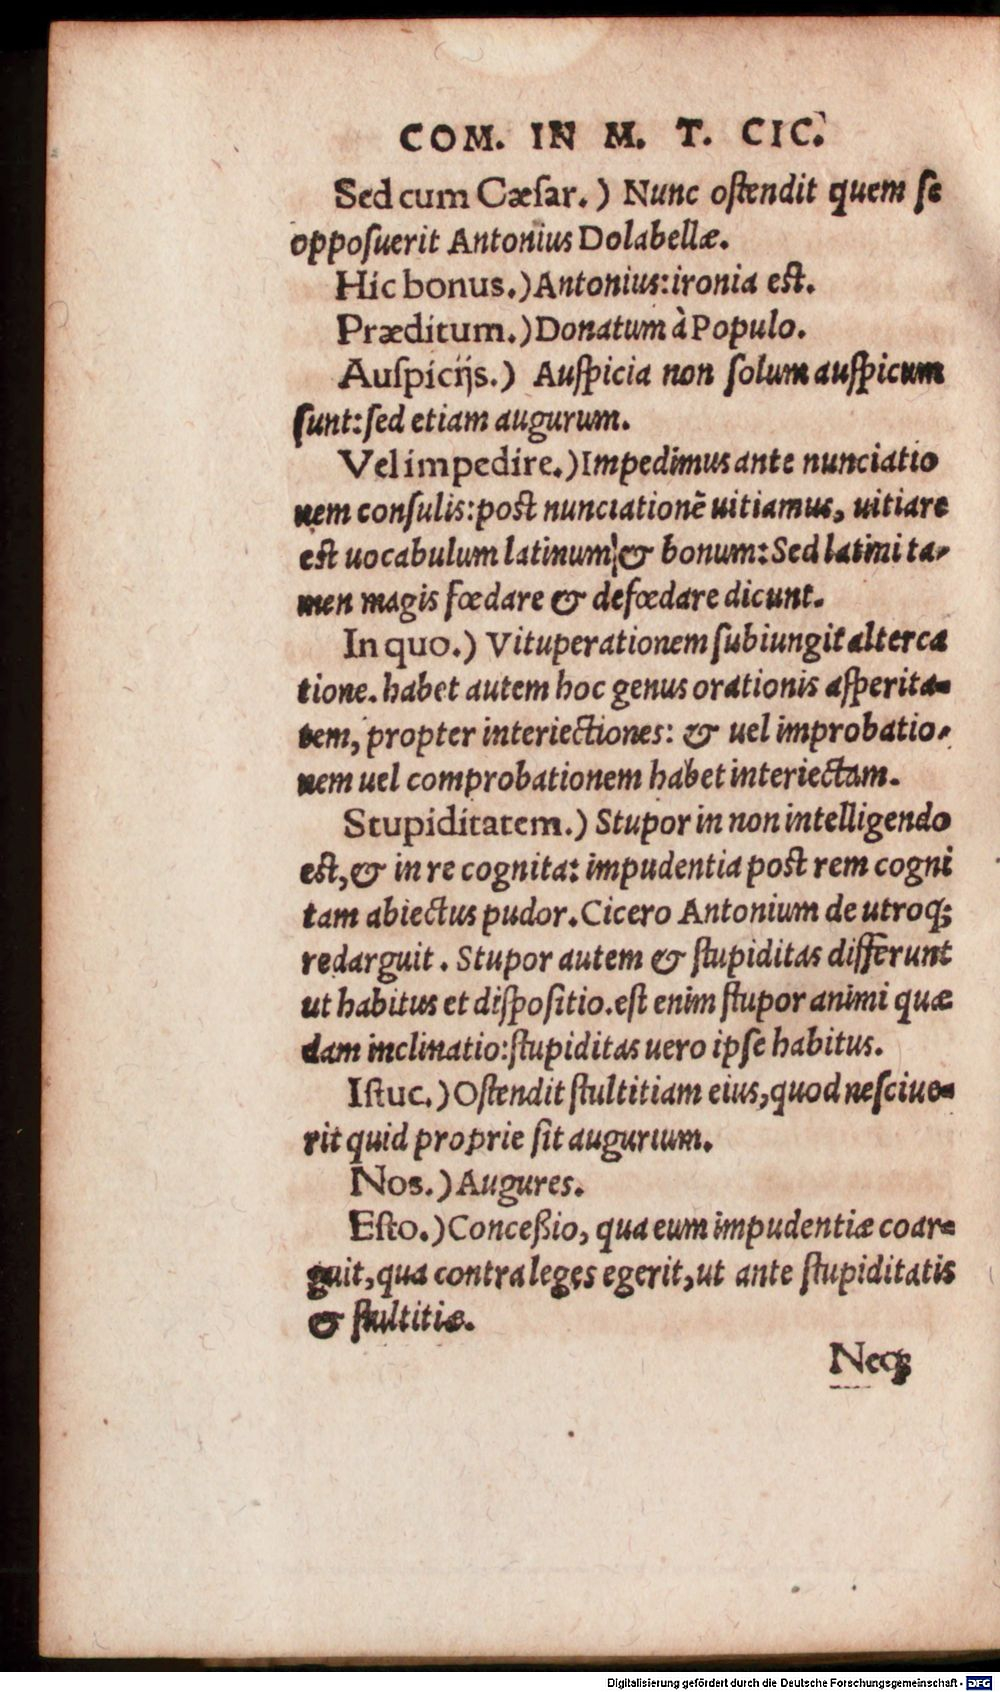 COM. IN M. T. CIC.
Sed cum Cæſar.) Nunc oſtendit quem ſe
oppoſuerit Antonius Dolabellæ.
Hic bonus.) Antonius: ironia eſt.
Præditum.) Donatum à Populo.
Auſpicijs.) Auſpicia non ſolum auſpicum
ſunt: ſed etiam augurum.
Vel impedire.) Impedimus ante nunciatio
nem conſulis: poſt nunciationẽ uitiamus, uitiare
eſt uocabulum latinum & bonum: Sed latini ta-
men magis fœdare & defœdare dicunt.
In quo.) Vituperationem ſubiungit alterca
tione. habet autem hoc genus orationis aſperita-
tem, propter interiectiones: & uel improbatio-
nem uel comprobationem habet interiectam.
Stupiditatem.) Stupor in non intelligendo
eſt, & in re cognita: impudentia poſt rem cogni
tam abiectus pudor. Cicero Antonium de utroq;
redarguit. Stupor autem & ſtupiditas differunt
ut habitus et diſpoſitio. eſt enim ſtupor animi quæ
dam inclinatio: ſtupiditas uero ipſe habitus.
Iſtuc.) Oſtendit ſtultitiam eius, quod neſciue-
rit quid proprie ſit augurium.
Nos.) Augures.
Eſto.) Conceßio, qua eum impudentiæ coar-
guit, qua contra leges egerit, ut ante ſtupiditatis
& ſtultitiæ.
Neq;
Digitalisierung gefördert durch die Deutsche Forschungsgemeinschaft - DFG